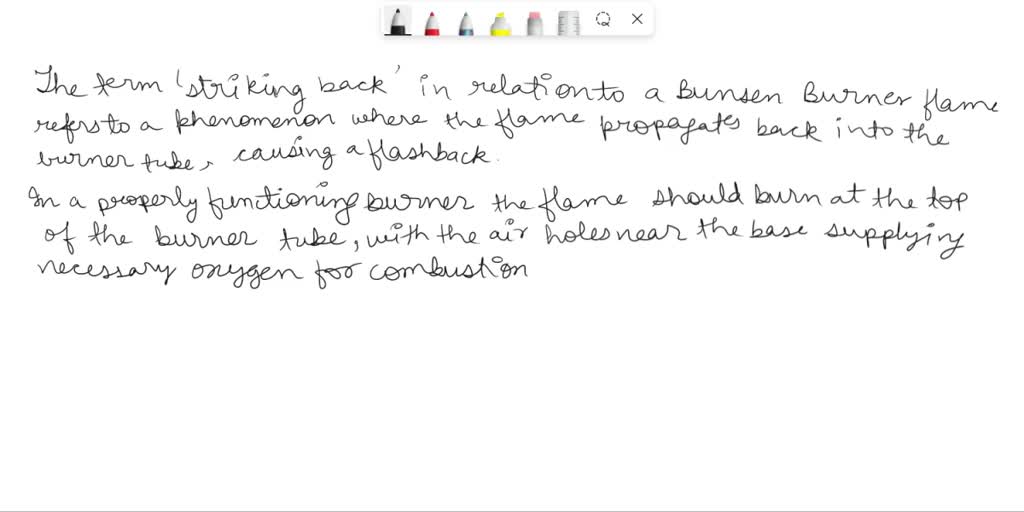 The term 'striking back' in relation to a Bunsen Burner flame
refers to a phenomenon where the flame propagates back into the
burner tube, causing a flashback.
In a properly functioning burner the flame should burn at the top
of the burner tube, with the air holes near the base supplying
necessary oxygen for combustion